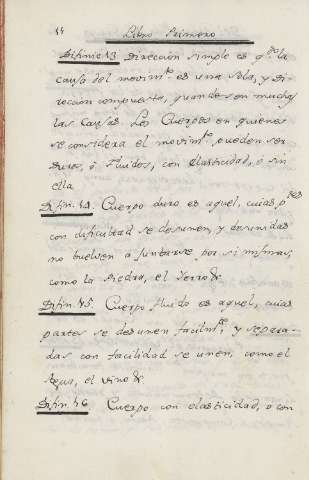 14 Libro Primero
Difinic. 13 Direccion simple es q.do la
causa del movim.to es una sola, y Di-
reccion compuesta, quando son muchas
las Causas. Los Cuerpos en quienes
se considera el movim.to, pueden ser
Duros, ò Fluidos, con Elasticidad, o sin
ella.
Difin. 14. Cuerpo duro es aquel, cuias p.tes
con dificultad se desunen, y desunidas
no buelven a juntarse por si mismas;
como la Piedra, el Yerro &.
Difin. 15. Cuerpo fluido es aquel, cuias
partes se desunen facilm.te, y separa-
das con facilidad se unen, como el
Agua, el vino &.
Difin. 16 Cuerpo con elasticidad, o con